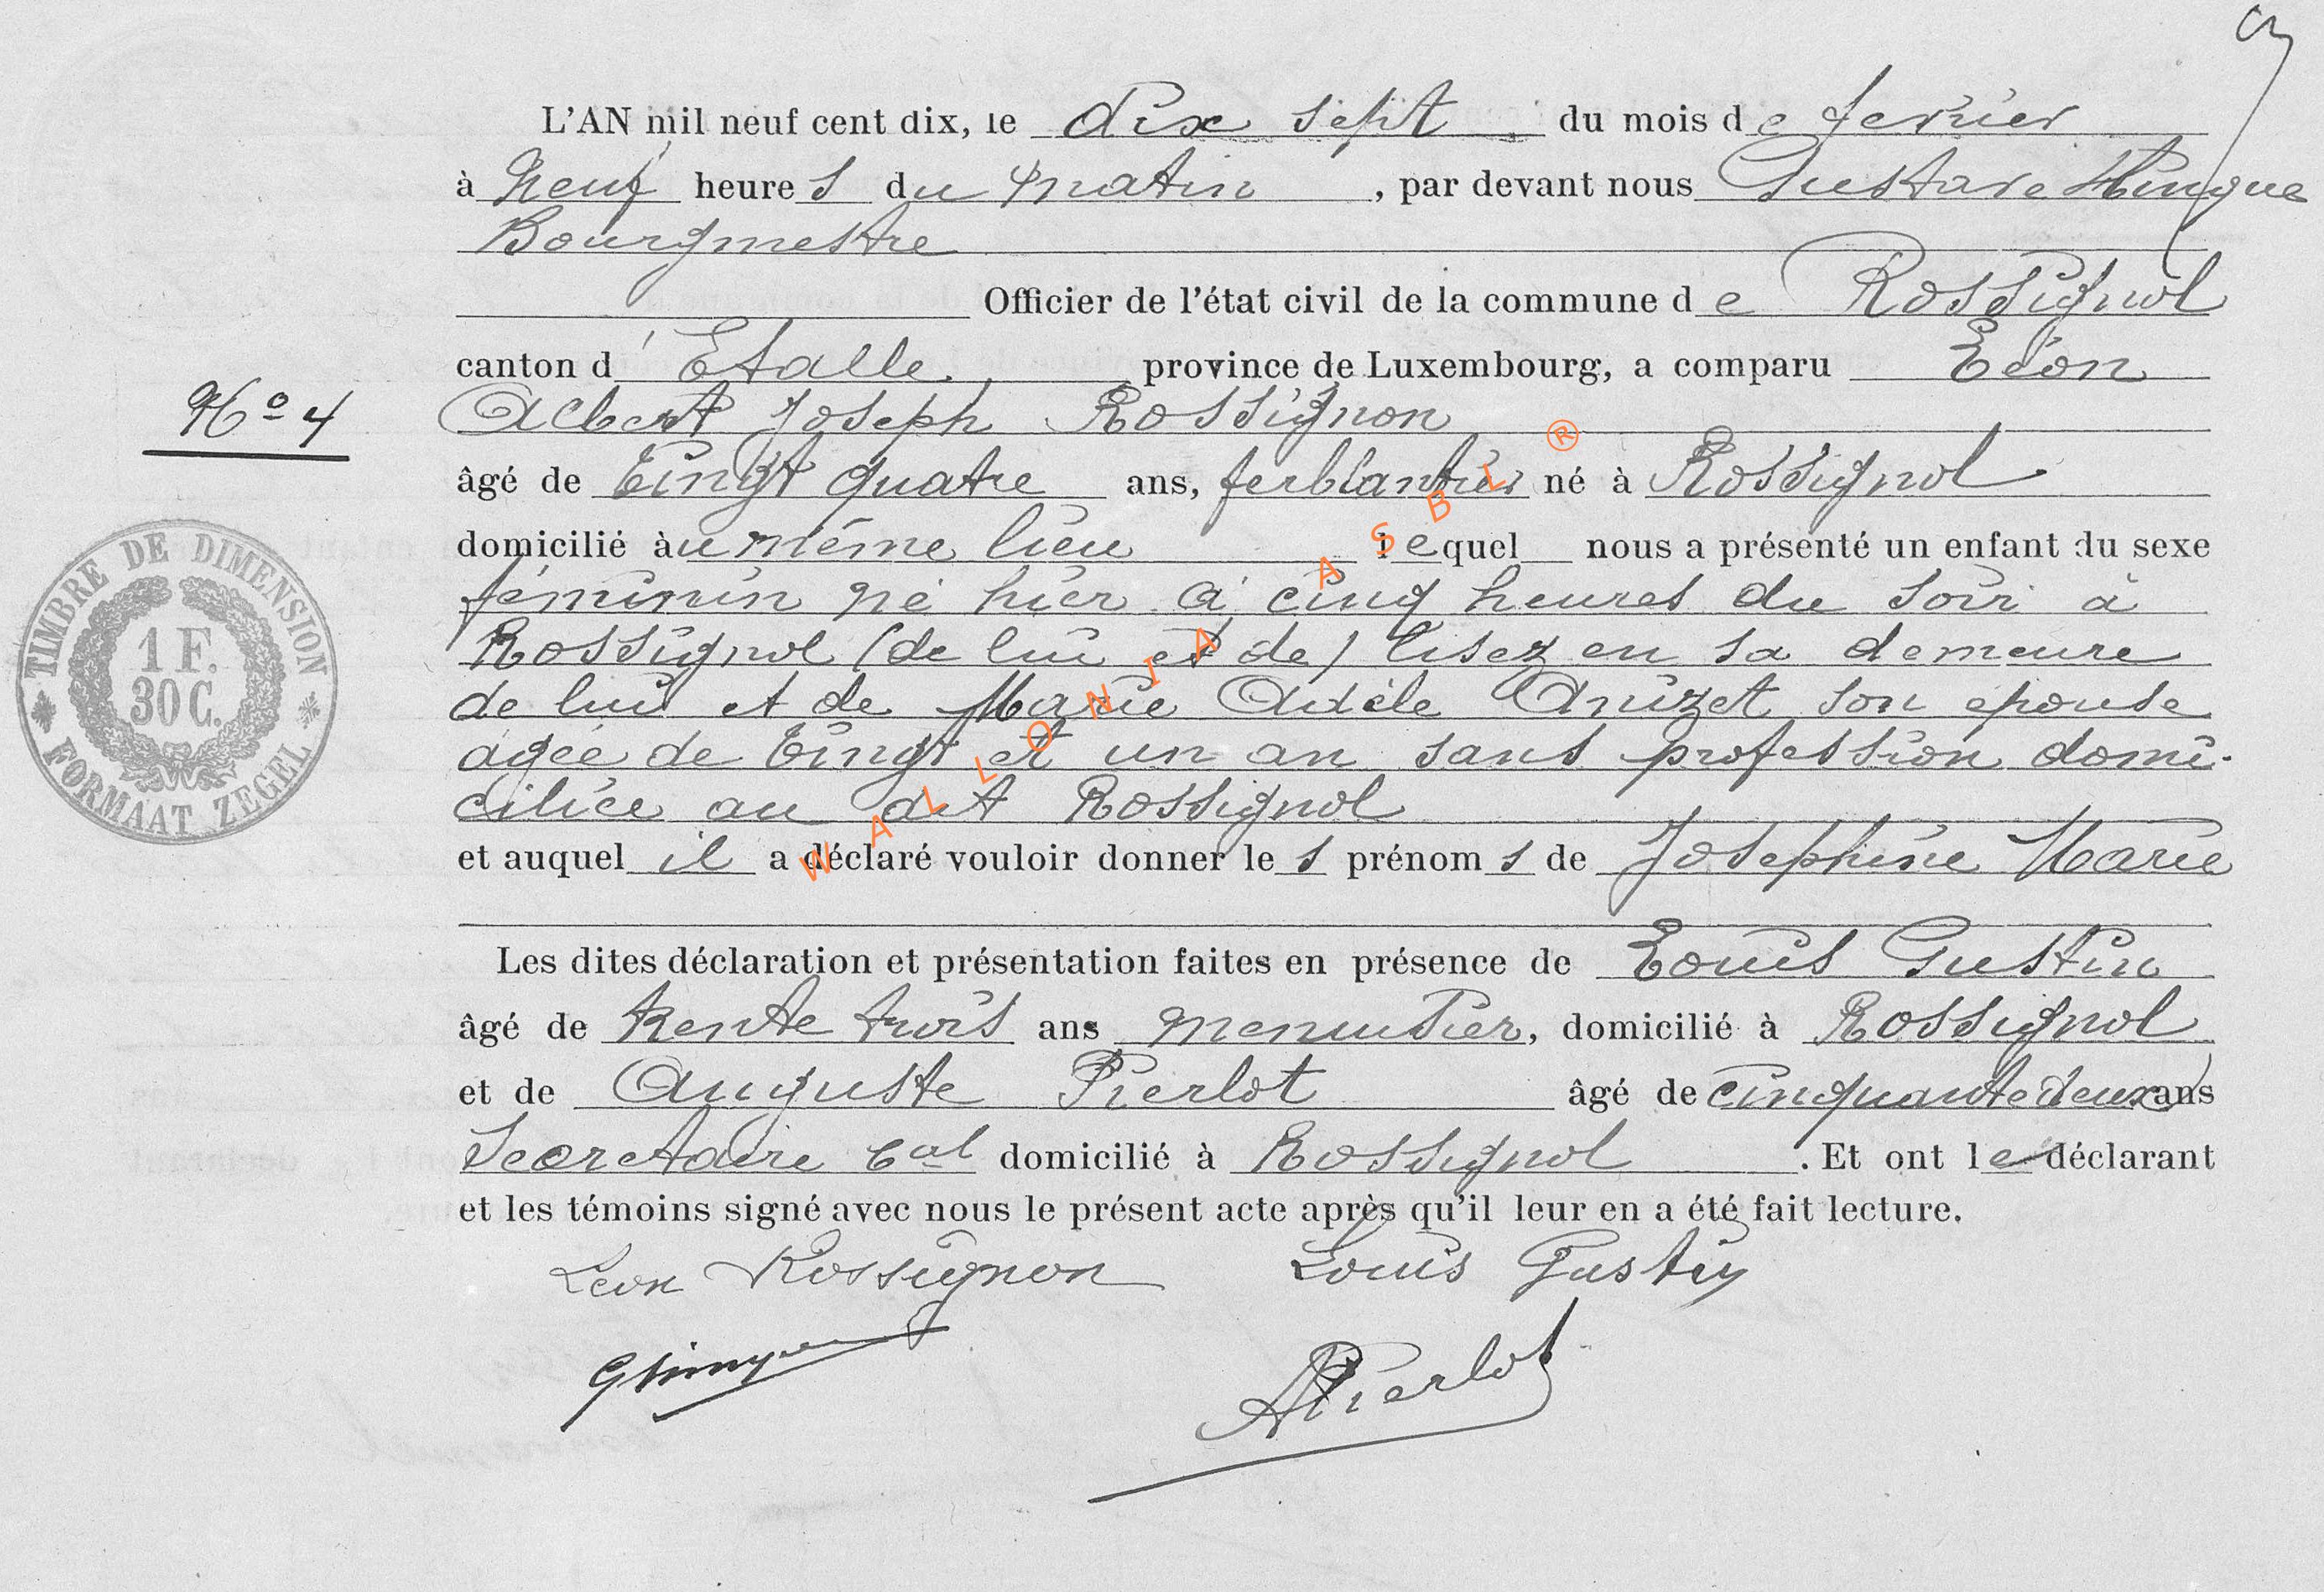 L'AN mil neuf cent dix, le dix sept du mois de fevrier
à Neuf heures du matin, par devant nous Gustave Hurieaux
Bourgmestre
Officier de l'état civil de la commune de Rossignol
canton d'Etalle, province de Luxembourg, a comparu Léon
N° 4
Albert Joseph Rossignon
âgé de vingt quatre ans, ferblantier né à Rossignol
domicilié au même lieu lequel nous a présenté un enfant du sexe
féminin né hier à cinq heures du soir à
Rossignol (de lui et de) lisez en sa demeure
de lui et de Marie Adèle Anizet son épouse
agée de vingt et un an sans profession domi-
ciliée au dit Rossignol
et auquel il a déclaré vouloir donner les prénoms de Joséphine Marie
Les dites déclaration et présentation faites en présence de Louis Gustin
âgé de trente trois ans menuisier, domicilié à Rossignol
et de Auguste Pierlot âgé de cinquante deux ans
Secretaire cal domicilié à Rossignol. Et ont le déclarant
et les témoins signé avec nous le présent acte après qu'il leur en a été fait lecture.
Léon Rossignon Louis Gustin
APierlot
TIMBRE DE DIMENSION
1 F.
30 C.
FORMAAT ZEGEL
WALLONIA ASBL ®